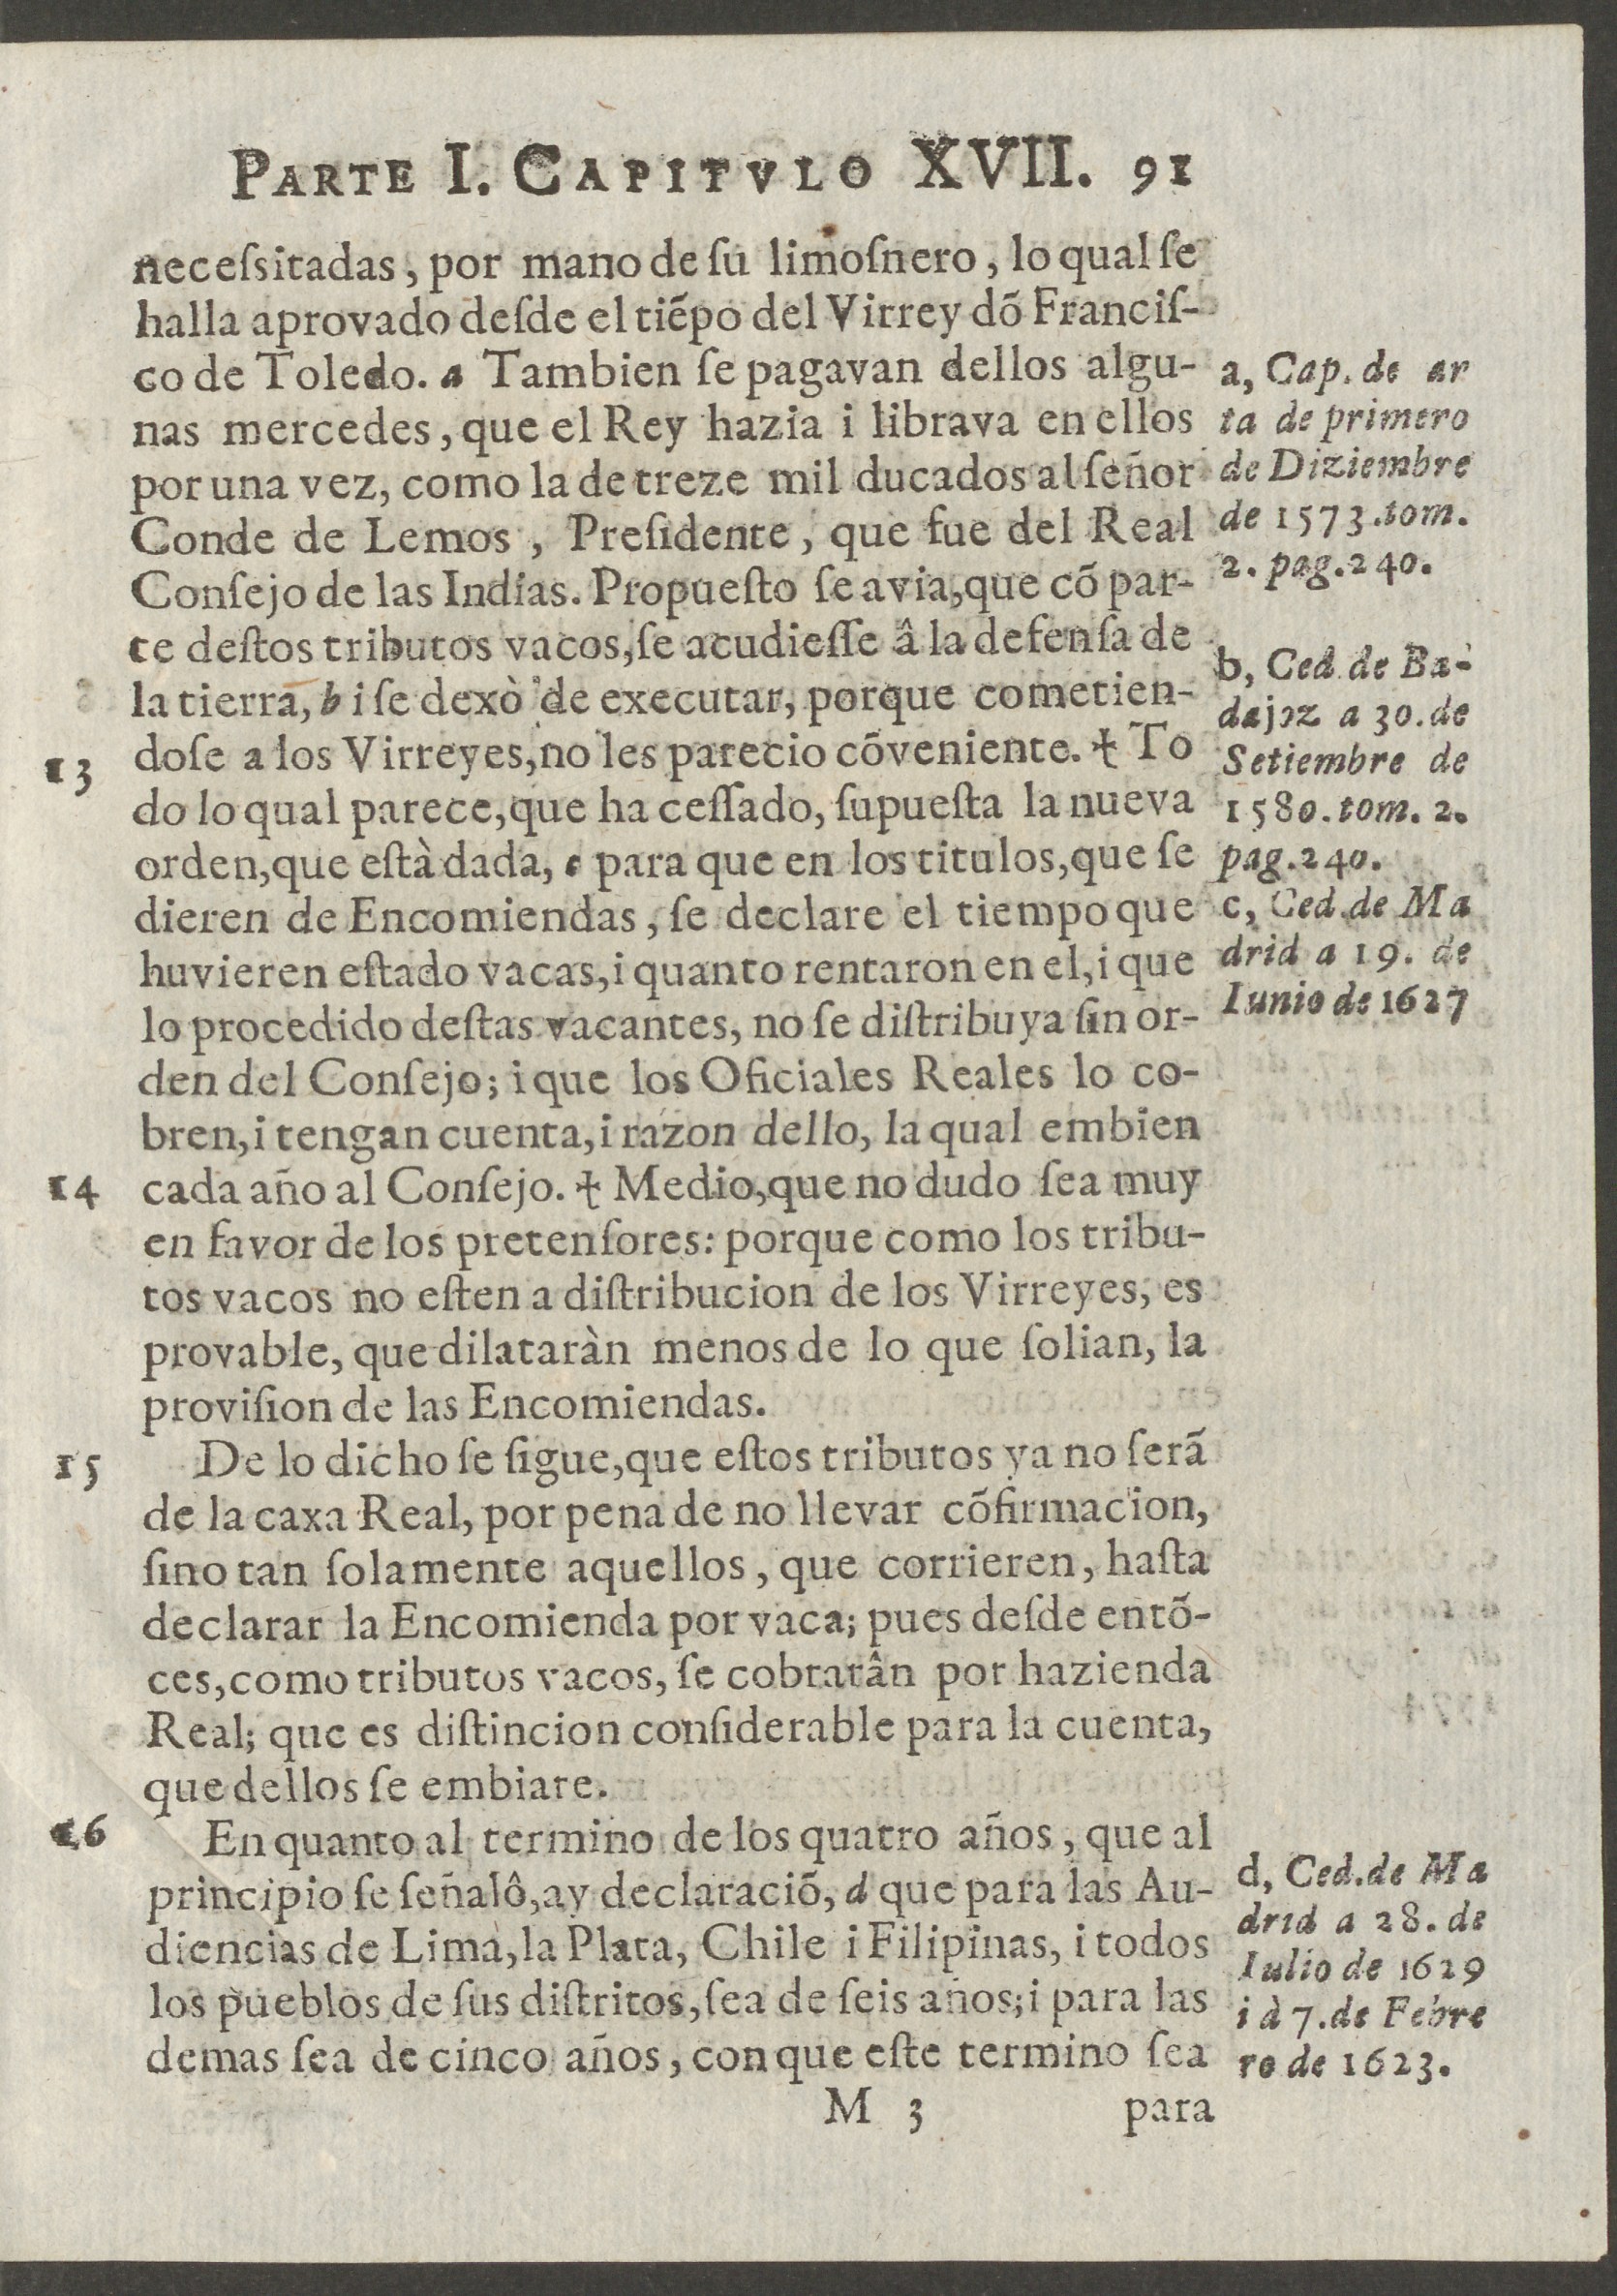 PARTE I. CAPITVLO XVII. 91
neceſsitadas, por mano de ſu limoſnero, lo qual ſe
halla aprovado deſde el tiẽpo del Virrey dõ Franciſ-
co de Toledo. a Tambien ſe pagavan dellos algu-
nas mercedes, que el Rey hazia i librava en ellos
por una vez, como la de treze mil ducados al ſeñor
Conde de Lemos, Preſidente, que fue del Real
Conſejo de las Indias. Propueſto ſe avia, que cõ par-
te deſtos tributos vacos, ſe acudieſſe â la defenſa de
la tierra, b i ſe dexò de executar, porque cometien-
13 doſe a los Virreyes, no les parecio cõveniente. ☩ To
do lo qual parece, que ha ceſſado, ſupueſta la nueva
orden, que eſtà dada, c para que en los titulos, que ſe
dieren de Encomiendas, ſe declare el tiempo que
huvieren eſtado vacas, i quanto rentaron en el, i que
lo procedido deſtas vacantes, no ſe diſtribuya ſin or-
den del Conſejo; i que los Oficiales Reales lo co-
bren, i tengan cuenta, i razon dello, la qual embien
14 cada año al Conſejo. ☩ Medio, que no dudo ſea muy
en favor de los pretenſores: porque como los tribu-
tos vacos no eſten a diſtribucion de los Virreyes, es
provable, que dilataràn menos de lo que ſolian, la
proviſion de las Encomiendas.
15 De lo dicho ſe ſigue, que eſtos tributos ya no ſerã
de la caxa Real, por pena de no llevar cõfirmacion,
ſino tan ſolamente aquellos, que corrieren, haſta
declarar la Encomienda por vaca; pues deſde entõ-
ces, como tributos vacos, ſe cobrarân por hazienda
Real; que es diſtincion conſiderable para la cuenta,
que dellos ſe embiare.
16 En quanto al termino de los quatro años, que al
principio ſe ſeñalô, ay declaraciõ, d que para las Au-
diencias de Lima, la Plata, Chile i Filipinas, i todos
los pueblos de ſus diſtritos, ſea de ſeis años; i para las
demas ſea de cinco años, con que eſte termino ſea
M 3 para
a, Cap. de ar
ta de primero
de Diziembre
de 1573. tom.
2. pag. 240.
b, Ced. de Ba-
dajoz a 30. de
Setiembre de
1580. tom. 2.
pag. 240.
c, Ced. de Ma
drid a 19. de
Iunio de 1627
d, Ced. de Ma
drid a 28. de
Iulio de 1629
i à 7. de Febre
ro de 1623.